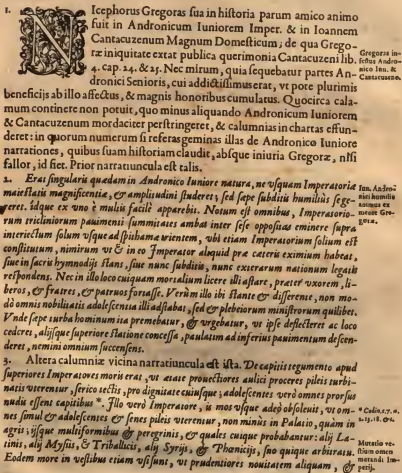 1.
Nicephorus Gregoras sua in historia parum amico animo
fuit in Andronicum Iuniorem Imper. & in Ioannem
Cantacuzenum Magnum Domesticum; de qua Grego-
ræ iniquitate extat publica querimonia Cantacuzeni lib.
4. cap. 24. & 25. Nec mirum, quia sequebatur partes An-
dronici Senioris, cui addictissimus erat, vt pote plurimis
beneficijs ab illo affectus, & magnis honoribus cumulatus. Quocirca cala-
mum continere non potuit, quo minus aliquando Andronicum Iuniorem
& Cantacuzenum mordaciter perstringeret, & calumnias in chartas effun-
deret: in quorum numerum si referas geminas illas de Andronico Iuniore
narrationes, quibus suam historiam claudit, absque iniuria Gregoræ, nisi
fallor, id fiet. Prior narratiuncula est talis.
Gregoras in-
festus Andro-
nico Iun. &
Cantacuzeno.
2. Eras singularis quædam in Andronico Iuniore natura, ne vsquam Imperatoriæ
maiestatis magnificentiæ, & amplitudini studeret; sed sæpe subditis humilius sege-
reret. idque ex vno è multis facilè apparebit. Notum est omnibus, Imperatorio-
rum tricliniorum pauimenti summitates ambas inter sese oppositas eminere supra
interiectum solum vsque ad spithama trientem, vbi etiam Imperatorium solium est
constitutum, nimirum vt & in eo Imperator aliquid præ cæteris eximium habeat,
siue in sacris hymnodijs stans, siue nunc subditis, nunc exterarum nationum legatis
respondens. Nec in illo loco cuiquam mortalium licere illi astare, præter vxorem, li-
beros, & fratres, & patruos fortasse. Verùm illo ibi stante & disserente, non mo-
dò omnis nobilitatis adolescentia illi adstabat, sed & plebeiorum ministrorum quilibet.
Vnde sæpe turba hominum ita premebatur, & vrgebatur, vt ipse deflecteret ac loco
cederet, alijsque superiore statione concessa, paulatim ad inferius pauimentum descen-
deret, nemini omnium succensens.
Iun. Andro-
nici humilis
animus ex
mente Gre-
goræ.
3. Altera calumniæ vicina narratiuncula est ista. De capitis tegumento apud
superiores Imperatores moris erat, vt ætate prouectiores aulici proceres pileis turbi-
natis vterentur, serico tectis, pro dignitate cuiusque; adolescentes verò omnes prorsus
nudis essent capitibus *. Illo verò Imperatore, is mos vsque adeò obsoleuit, vt om-
nes simul & adolescentes & senes pileis vterentur, non minùs in Palatio, quàm in
agris; ijsque multiformibus & peregrinis, & quales cuique probabantur: alij La-
tinis, alij Mysiis, & Triballicis, alij Syrijs, & Phœnicijs, suo quique arbitratu.
Eodem more in vestibus etiam vsi sunt, vt prudentiores nouitatem aliquam, &
* Codin. c. 7. n.
Mutatio ve-
stium omen
mutandi Im-
perij.